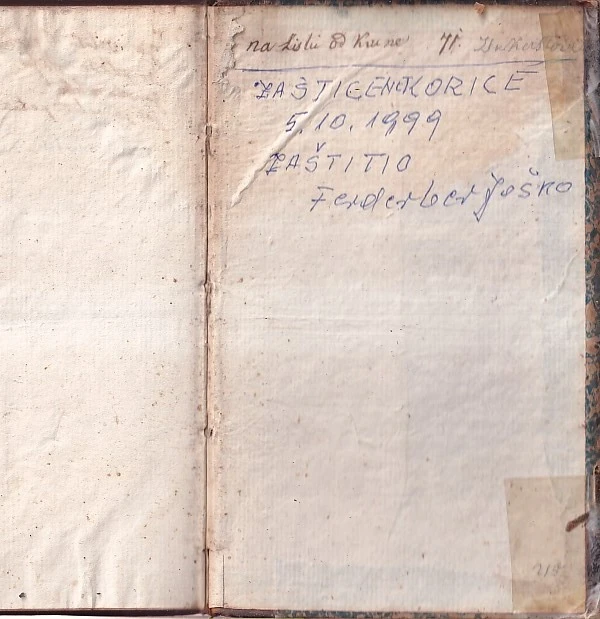 na Listu od Krune 71.
ZAŠTIĆENE KORICE
5.10.1999
ZAŠTITIO
Ferderber Joško